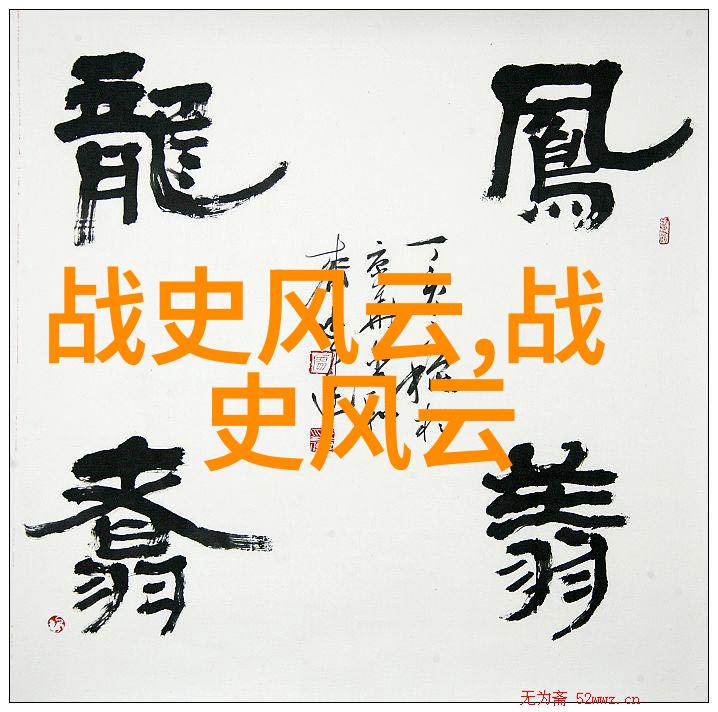 鳳翔
龍翥
丁亥
战史风云,战
史风云
无为斋 52wwz.cn